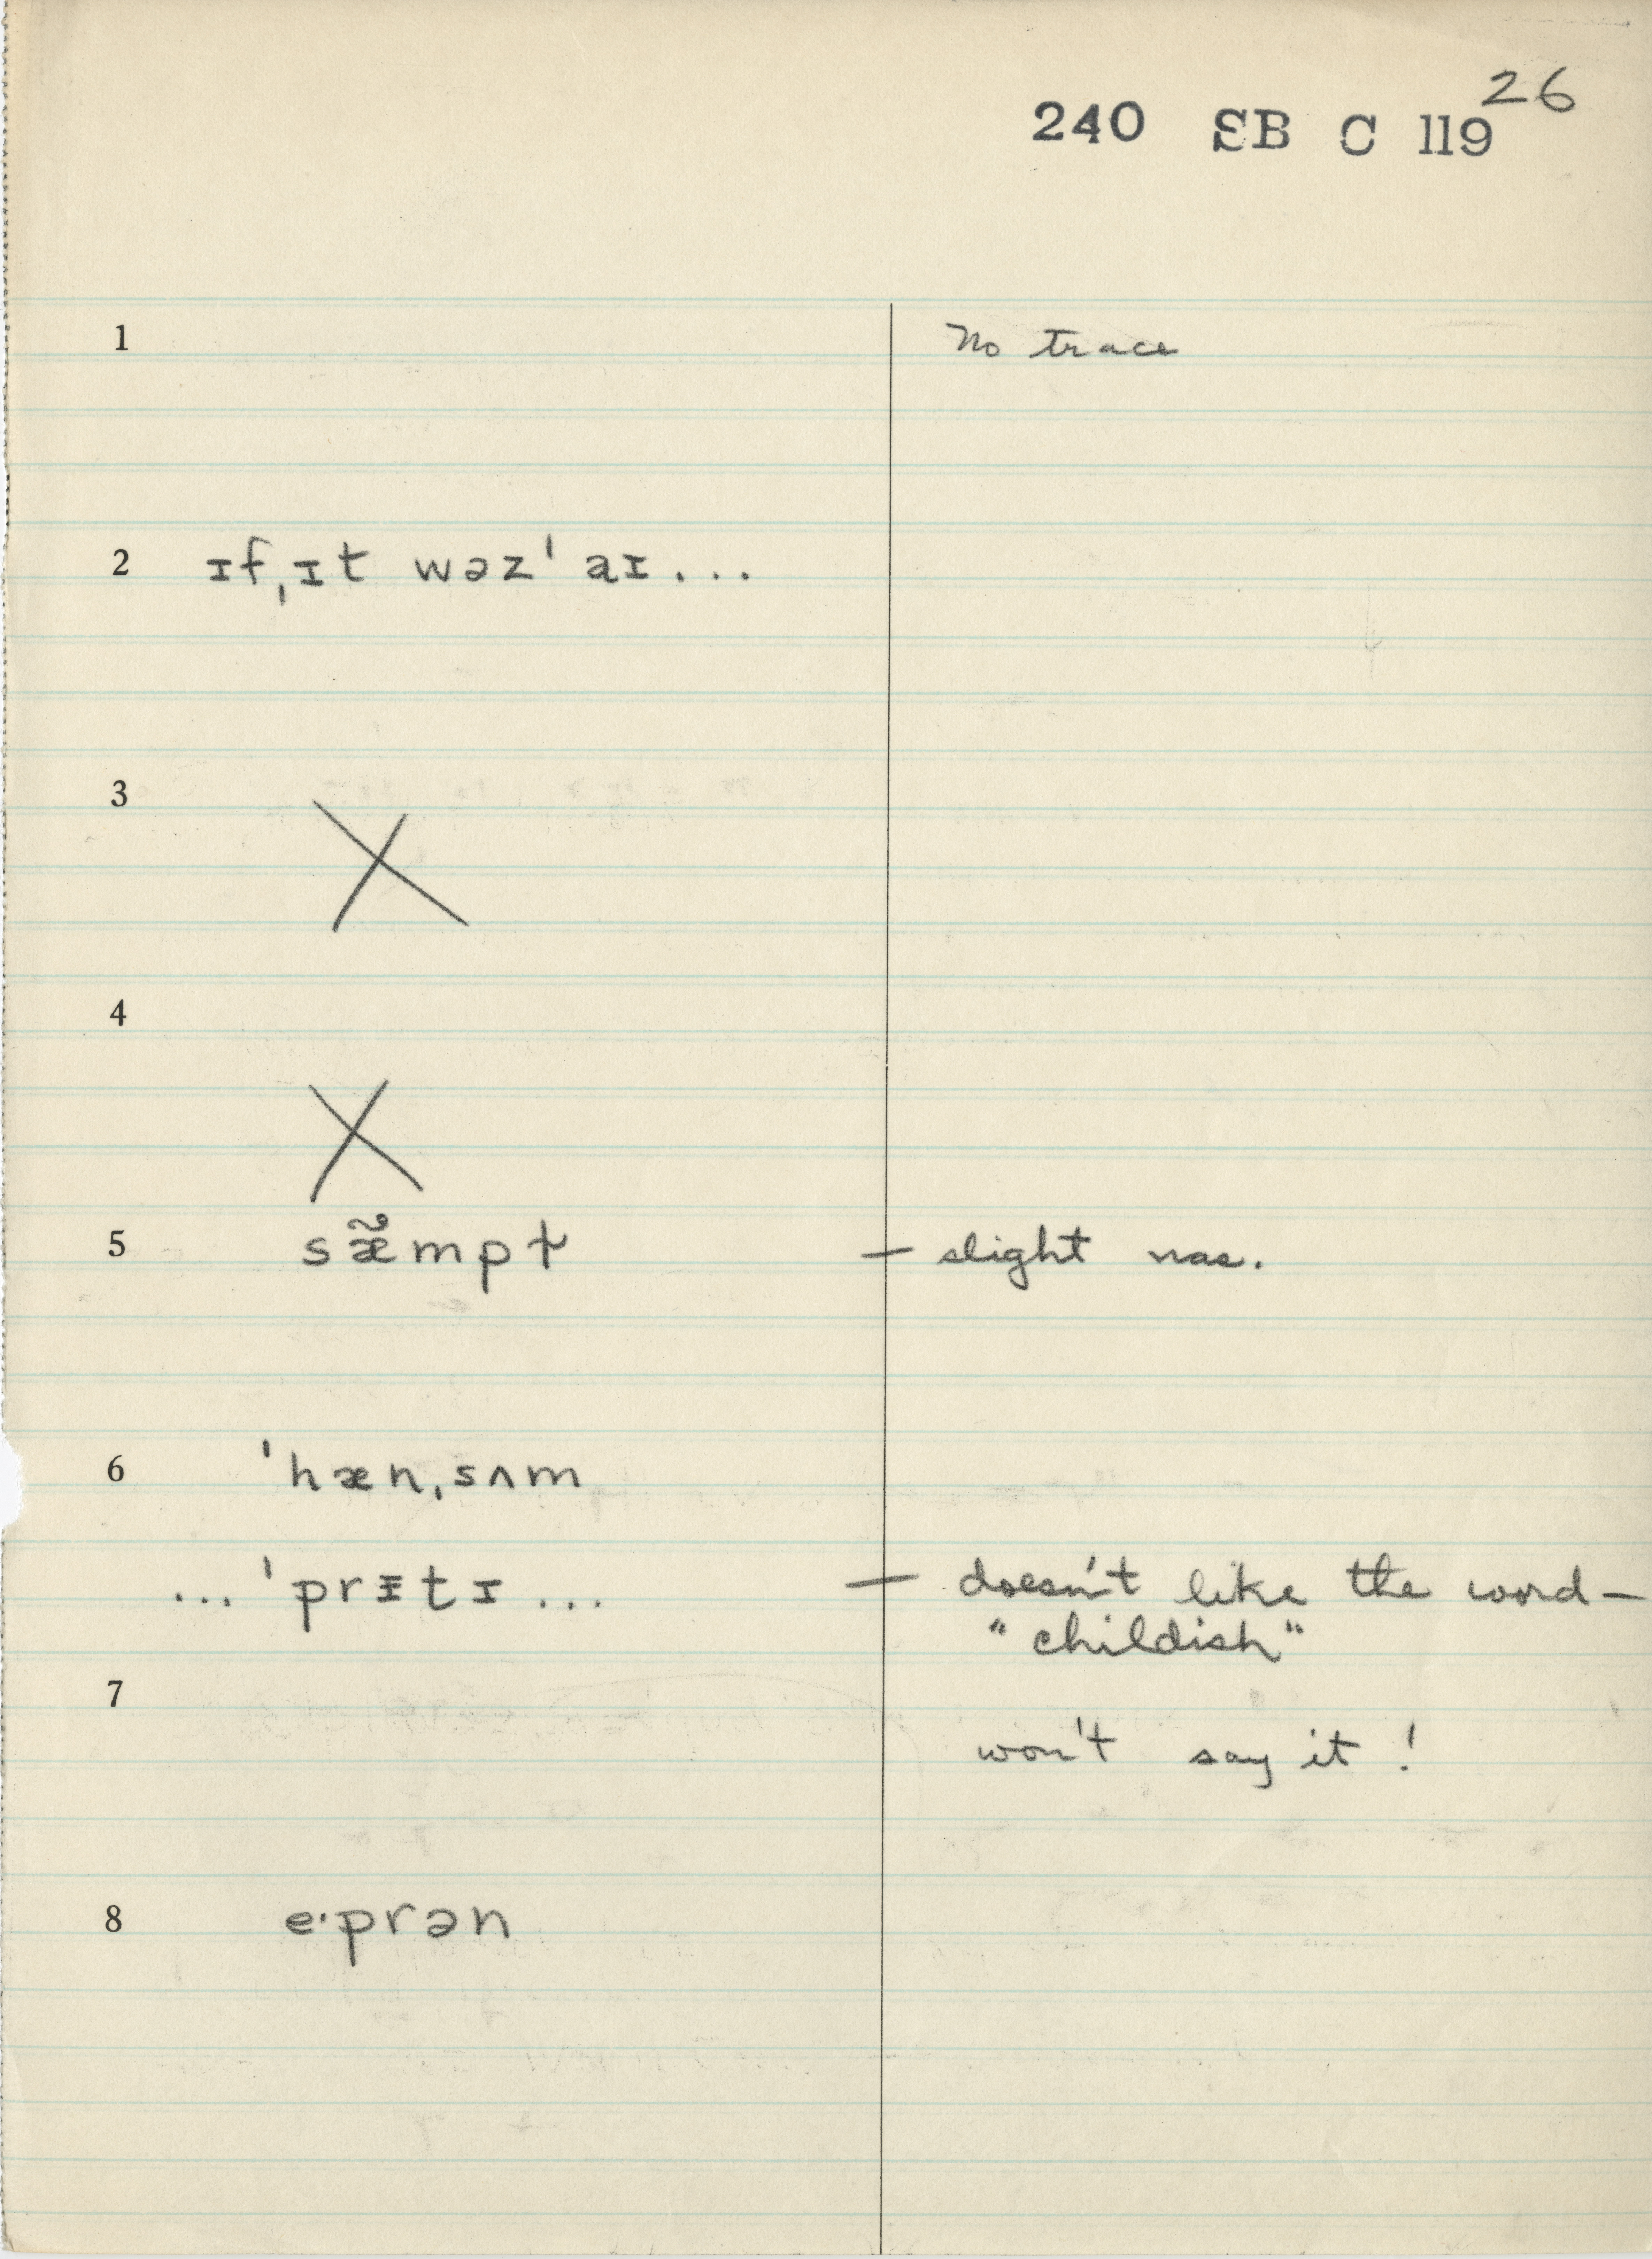 26
240 SB C 119
1 No trace
2 ɪf ˌɪt wəz ˈaɪ...
3 X
4
X
5 sæ̃mpt — slight nas.
6 ˈhænˌsʌm
... ˈprᵻtɪ ... — doesn't like the word—
"childish"
7
won't say it!
8 e·prən